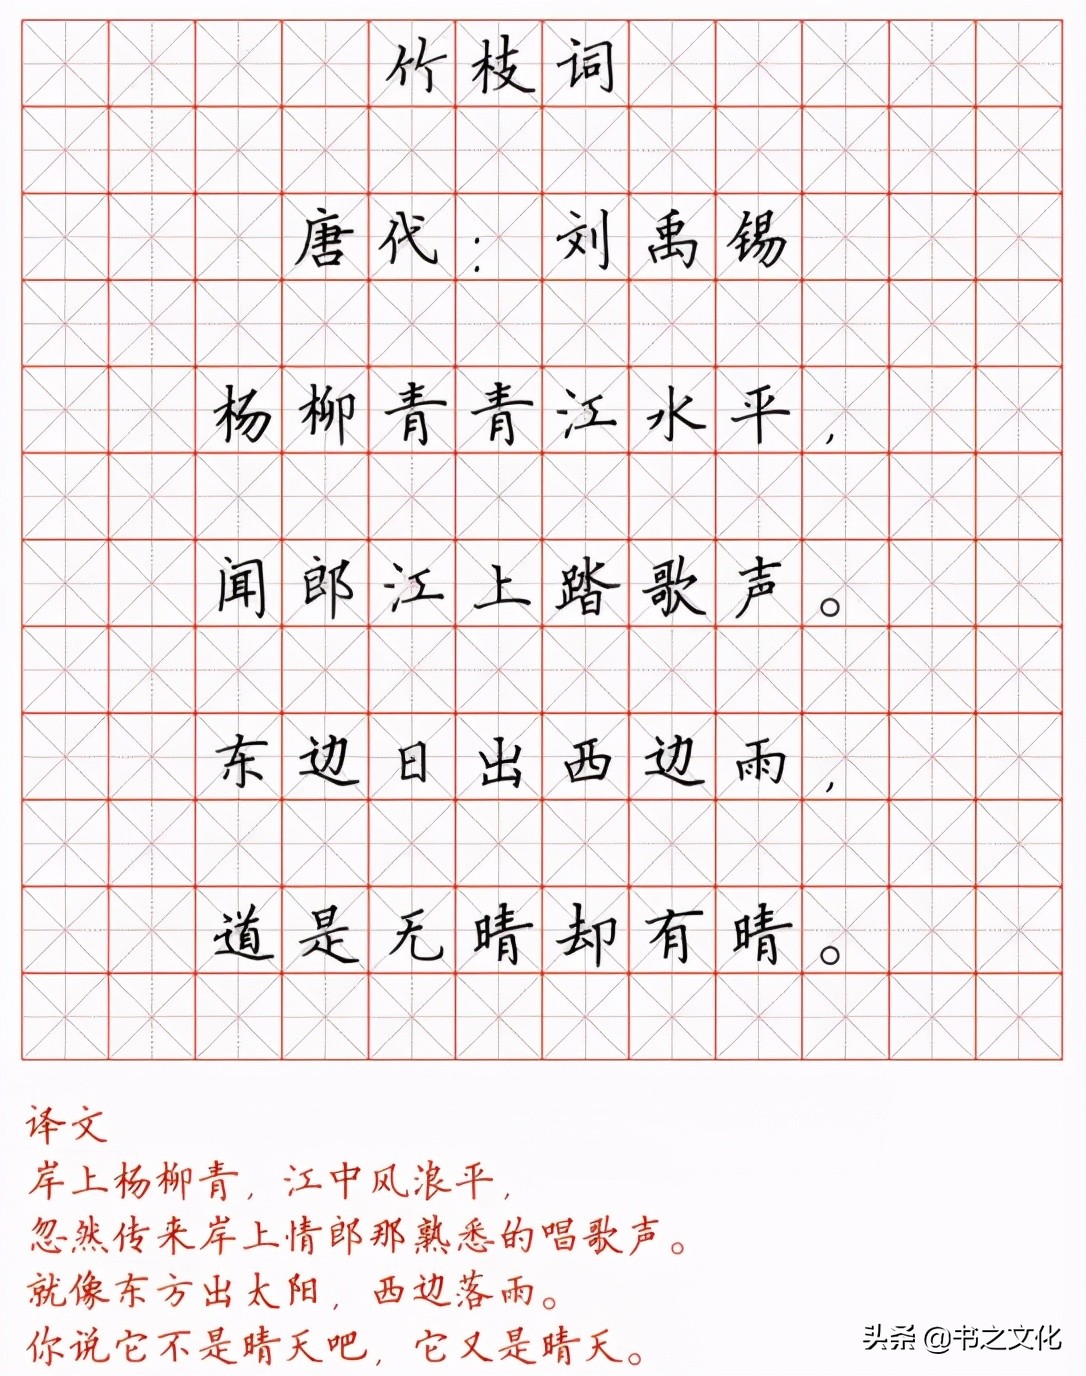 竹枝词
唐代：刘禹锡
杨柳青青江水平，
闻郎江上踏歌声。
东边日出西边雨，
道是无晴却有晴。
译文
岸上杨柳青，江中风浪平，
忽然传来岸上情郎那熟悉的唱歌声。
就像东方出太阳，西边落雨。
你说它不是晴天吧，它又是晴天。
头条 @书之文化